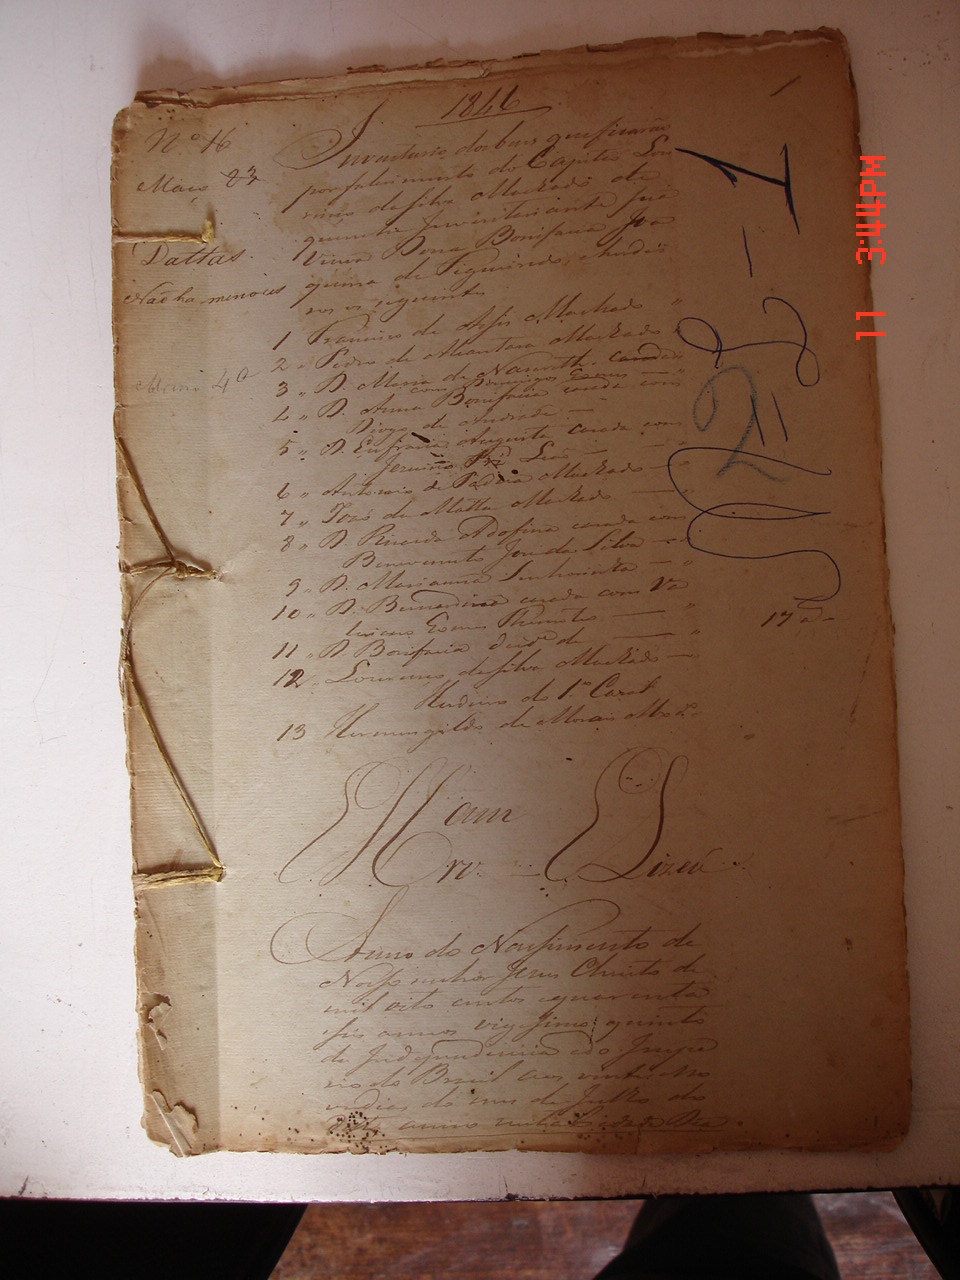 1846
Nº 16
Maço 23
Dattas.
Não ha menores
Inventario dos bens que ficarão
por falescimento do Capitão Lou
renço da Silva Machado de
quem he Inventariante sua
Viuva Dona Bonifacia Joa
quina de Figueiredo, e herdei
ros os seguintes
1 Francisco de Assis Machado "
2 " Pedro de Alcantara Machado "
3 " D. Maria de Nazareth casada
com Domingos Gomes
4 " D. Anna Bonifacia casada com
Diogo de Andrade
5 " D. Eufrasia Augusta casada com
Jeronimo Leão
6 " Antonio de Padua Machado "
7 " José da Matta Machado "
8 " D. Ricarda Adolfina casada com
Benevenuto José da Silva "
9 " D. Marianna Senhorinha "
10 " D. Bernardina casada com Ve
Gomes "
11 " D. Bonifacia "
12 " Lourenço da Silva Machado
Herdeiro do 1º Casal
13 Hermenegildo de Morais Mxdº
17 a
3:44PM
11
Anno do Nascimento de
Nosso senhor Jesus Christo de
mil oito centos e quarenta
e seis annos vigessimo quinto
da Independencia e do Impe
rio do Brasil aos vinte
dias do mes de Julho do
dito anno nesta Cidade Dia